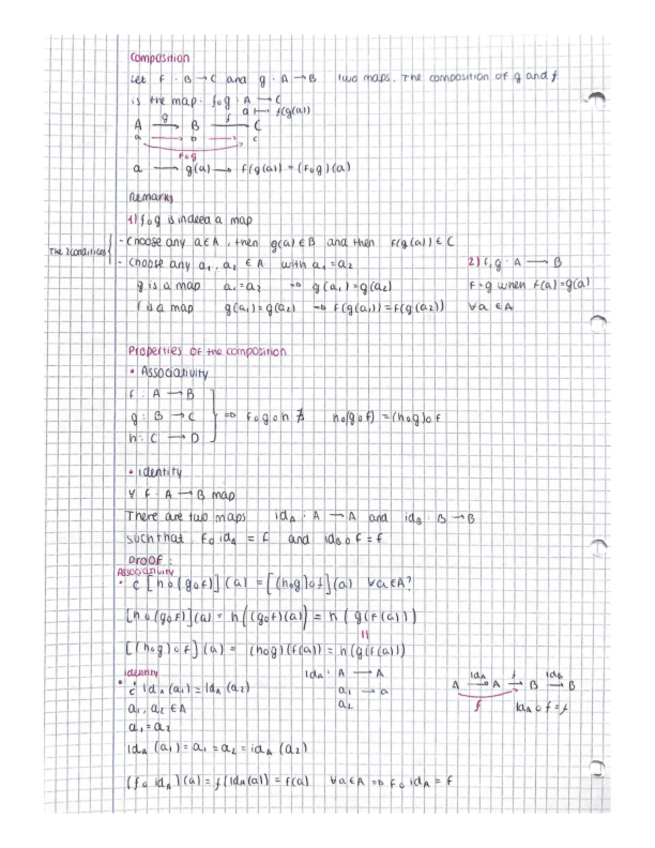 Composition
Let f : B → C and g : A → B two maps. The composition of g and f
is the map: f∘g : A → C
a ↦ f(g(a))
A —g→ B —f→ C
a → b → c
f∘g
a → g(a) → f(g(a)) = (f∘g)(a)
Remarks
1) f∘g is indeed a map
The 2 conditions { - choose any a ∈ A, then g(a) ∈ B and then f(g(a)) ∈ C
- choose any a₁, a₂ ∈ A with a₁ = a₂
g is a map a₁ = a₂ ⇒ g(a₁) = g(a₂)
f is a map g(a₁) = g(a₂) ⇒ f(g(a₁)) = f(g(a₂))
2) f, g : A → B
f = g when f(a) = g(a)
∀a ∈ A
Properties of the composition
• Associativity
f : A → B
g : B → C } ⇒ f∘g∘h ∄ h∘(g∘f) = (h∘g)∘f
h : C → D
• identity
∀ f : A → B map
There are two maps id_A : A → A and id_B : B → B
such that f∘id_A = f and id_B∘f = f
Proof :
Associativity
• ¿ [h∘(g∘f)](a) = [(h∘g)∘f](a) ∀a ∈ A?
[h∘(g∘f)](a) = h((g∘f)(a)) = h(g(f(a)))
||
[(h∘g)∘f](a) = (h∘g)(f(a)) = h(g(f(a)))
identity
• ¿ id_A(a₁) = id_A(a₂)
a₁, a₂ ∈ A
a₁ = a₂
id_A : A → A
a₁ → a
a₂
A —id_A→ A —f→ B —id_B→ B
f
id_B∘f = f
id_A(a₁) = a₁ = a₂ = id_A(a₂)
(f∘id_A)(a) = f(id_A(a)) = f(a) ∀a ∈ A ⇒ f∘id_A = f